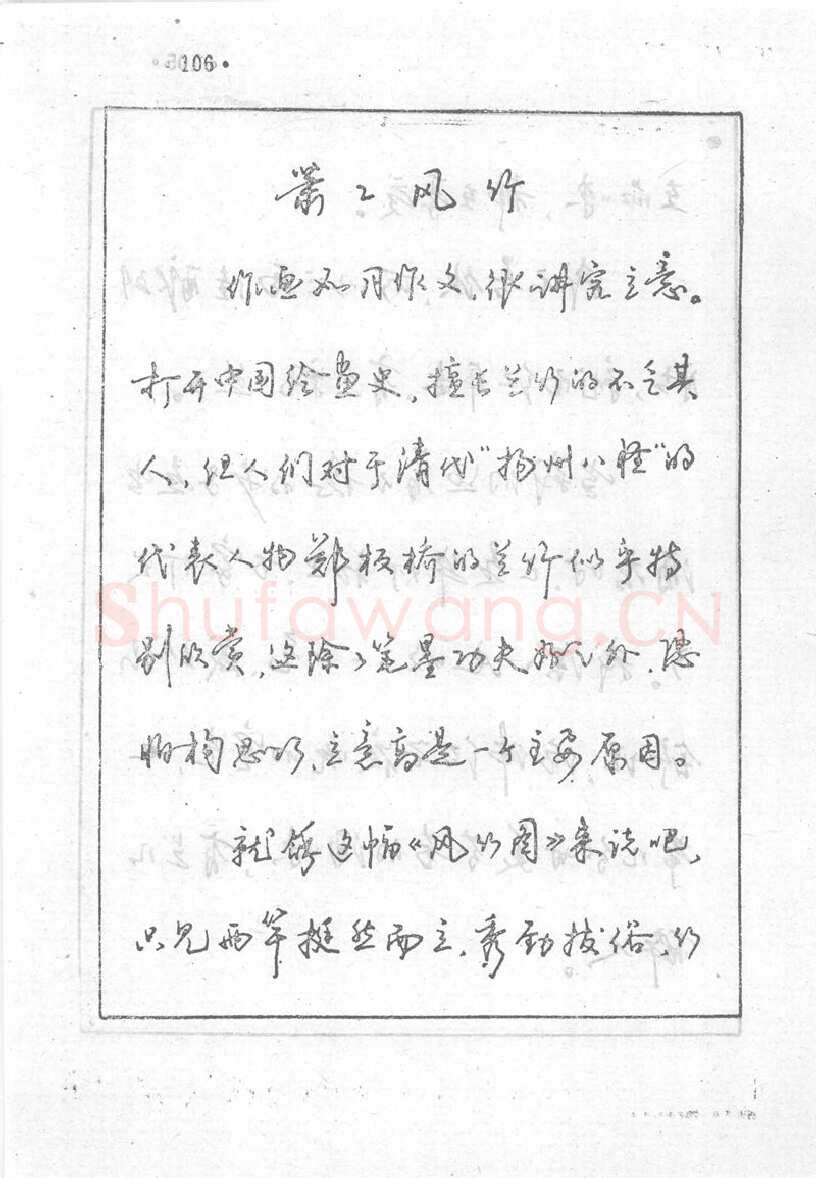 ·106·
萧萧风竹
作画如同作文，很讲究立意。
打开中国绘画史，擅长兰竹的不乏其
人，但人们对于清代“扬州八怪”的
代表人物郑板桥的兰竹似乎特
别欣赏，这除了笔墨功夫好之外，恐
怕构思巧、立意高是一个主要原因。
就 这幅《风竹图》来说吧，
只见两竿挺然而立，秀劲拔俗，竹
Shufawang.CN